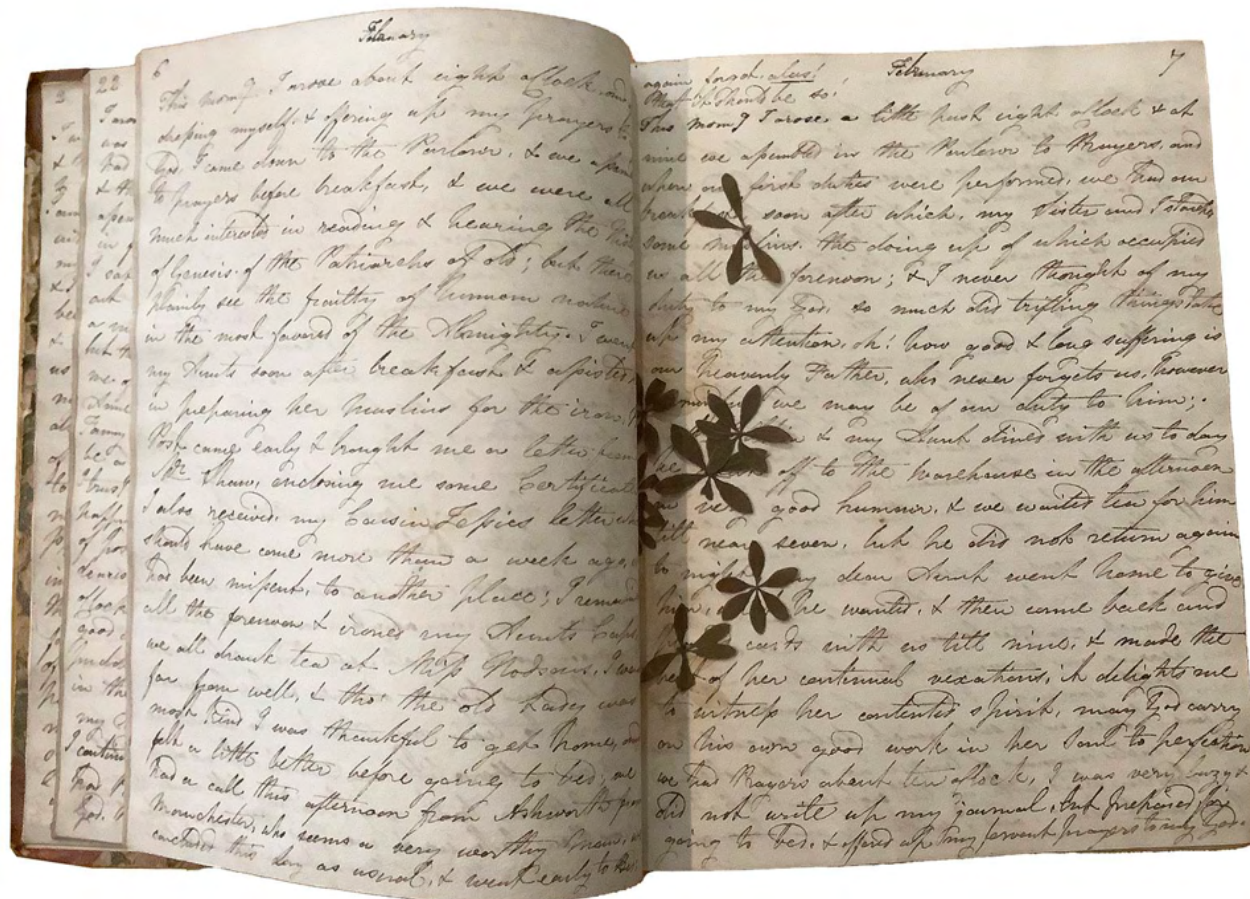 February
6
This morng I rose about eight o'clock and
dressing myself & offering up my Prayers to
God, I came down to the Parlour, & we
to prayers before breakfast, & we were all
much interested in reading & hearing the
of Genesis. of the Patriarchs of old; but there
plainly see the frailty of humam nature
in the most favored of the Almighty. I went
my Aunts soon after breakfast & assisted
in preparing her Muslins for the iron,
Post came early & brought me a letter from
Shaw, enclosing me some Certificate
I also received, my Cousin letter
should have come more than a week ago,
had been missent, to another place; I remained
all the forenoon & ironed my Aunts Caps
we all drank tea at Miss I was
far from well, & tho' the old Lady was
most kind I was thankful to get home, and
felt a little better before going to bed; we
had a call this afternoon from Ashworth from
Manchester, who seems a very worthy
this day as usual, & went early to
February
7
again forgot. alas!
that it should be so!
This morng I arose, a little past eight o'clock & at
nine we assembled in the Parlour to Prayers, and
when our first duties were performed, we had our
soon after which, my Sister and I
some muslins. the doing up of which occupied
us all the forenoon; & I never thought of my
duty to my God. so much did trifling things take
up my attention, oh! how good & long suffering is
our Heavenly Father, who never forgets us, however
we may be of our duty to him;
& my Aunt dines with us to day
off to the Warehouse in the afternoon
good humour, & we waited tea for him
till near seven, but he did not return again
to night my dear Aunt went home to give
him, he wanted, & then came back and
cards with us till nine, & made the
of her continual vexations, it delights me
to witness her contented spirit, may God carry
on his own good work in her Soul to perfection
we had Prayers about ten o'clock, I was very busy &
did not write up my journal, but prepared for
going to bed. & offered up my fervent prayers to my God.